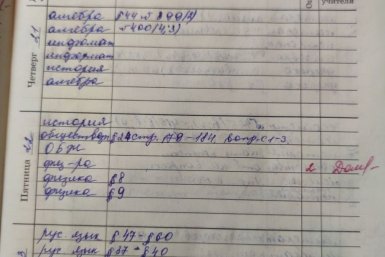 учителя
Четверг 21
алгебра §44 №399(2)
алгебра №400(4;3)
информат
информат
история
алгебра
Пятница 22
история
обществозн §24 стр. 178-184, вопр. 1-3
ОБЖ
физ-ра 2
физика §8
физика §9
рус. язык §47-§60
рус. язык §37-§40